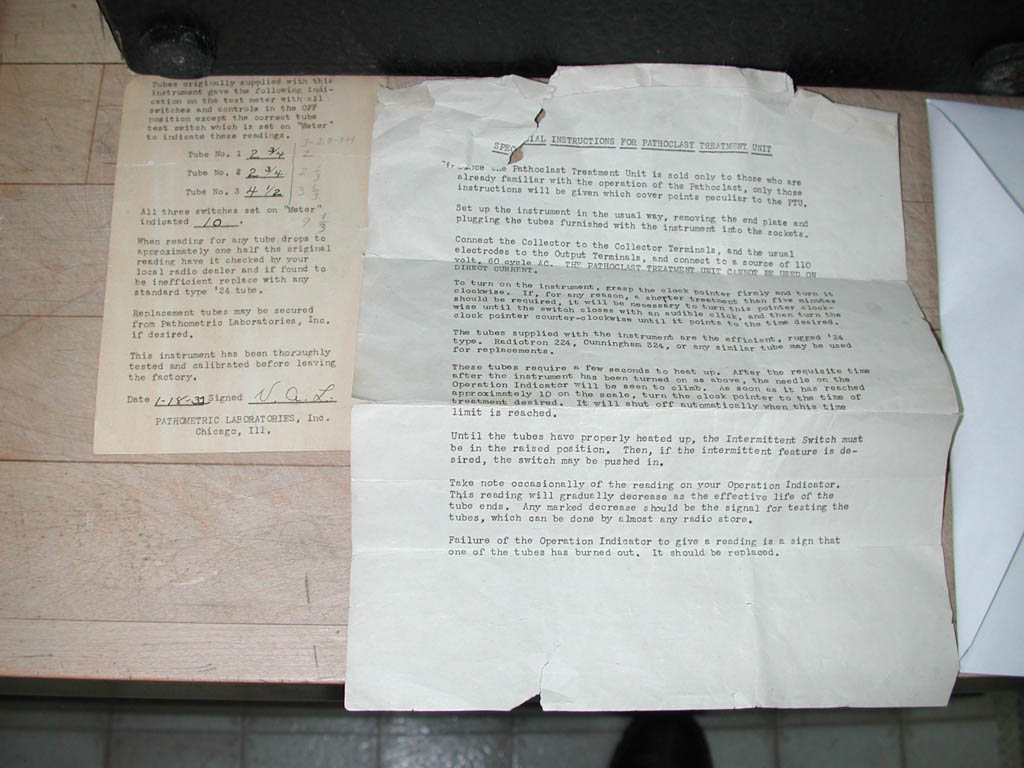 Tubes originally supplied with this
instrument gave the following indi-
cation on the test meter with all
switches and controls in the OFF
position except the correct tube
test switch which is set on "Meter"
to indicate these readings.
Tube No. 1 2 3/4
Tube No. 2 2 3/4
Tube No. 3 4 1/2
All three switches set on "Meter"
indicated 10.
When reading for any tube drops to
approximately one half the original
reading have it checked by your
local radio dealer and if found to
be inefficient replace with any
standard type '24 tube.
Replacement tubes may be secured
from Pathometric Laboratories, Inc.
if desired.
This instrument has been thoroughly
tested and calibrated before leaving
the factory.
Date 1-18-33 Signed V. A. L.
PATHOMETRIC LABORATORIES, Inc.
Chicago, Ill.
SPEC IAL INSTRUCTIONS FOR PATHOCLAST TREATMENT UNIT
Since the Pathoclast Treatment Unit is sold only to those who are
already familiar with the operation of the Pathoclast, only those
instructions will be given which cover points peculiar to the PTU.
Set up the instrument in the usual way, removing the end plate and
plugging the tubes furnished with the instrument into the sockets.
Connect the Collector to the Collector Terminals, and the usual
electrodes to the Output Terminals, and connect to a source of 110
volt, 60 cycle AC. THE PATHOCLAST TREATMENT UNIT CANNOT BE USED ON
DIRECT CURRENT.
To turn on the instrument, grasp the clock pointer firmly and turn it
clockwise. If, for any reason, a shorter treatment than five minutes
should be required, it will be necessary to turn this pointer clock-
wise until the switch closes with an audible click, and then turn the
clock pointer counter-clockwise until it points to the time desired.
The tubes supplied with the instrument are the efficient, rugged '24
type. Radiotron 224, Cunningham 324, or any similar tube may be used
for replacements.
These tubes require a few seconds to heat up. After the requisite time
after the instrument has been turned on as above, the needle on the
Operation Indicator will be seen to climb. As soon as it has reached
approximately 10 on the scale, turn the clock pointer to the time of
treatment desired. It will shut off automatically when this time
limit is reached.
Until the tubes have properly heated up, the Intermittent Switch must
be in the raised position. Then, if the intermittent feature is de-
sired, the switch may be pushed in.
Take note occasionally of the reading on your Operation Indicator.
This reading will gradually decrease as the effective life of the
tube ends. Any marked decrease should be the signal for testing the
tubes, which can be done by almost any radio store.
Failure of the Operation Indicator to give a reading is a sign that
one of the tubes has burned out. It should be replaced.